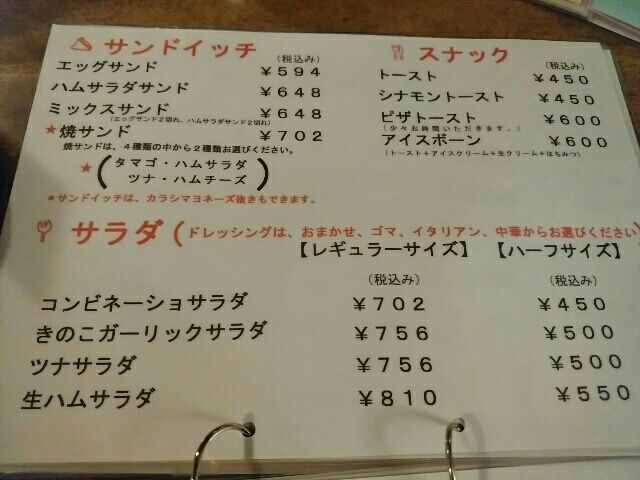 サンドイッチ
(税込み)
エッグサンド ￥５９４
ハムサラダサンド ￥６４８
ミックスサンド ￥６４８
(エッグサンド２切れ、ハムサラダサンド２切れ)
★焼サンド ￥７０２
焼サンドは、４種類の中から２種類お選びください。
★(タマゴ・ハムサラダ
ツナ・ハムチーズ)
*サンドイッチは、カラシマヨネーズ抜きもできます。
スナック
(税込み)
トースト ￥４５０
シナモントースト ￥４５０
ピザトースト ￥６００
(少々お時間いただきます。)
アイスボーン ￥６００
(トースト+アイスクリーム+生クリーム+はちみつ)
サラダ(ドレッシングは、おまかせ、ゴマ、イタリアン、中華からお選びください)
【レギュラーサイズ】 【ハーフサイズ】
(税込み) (税込み)
コンビネーショサラダ ￥７０２ ￥４５０
きのこガーリックサラダ ￥７５６ ￥５００
ツナサラダ ￥７５６ ￥５００
生ハムサラダ ￥８１０ ￥５５０